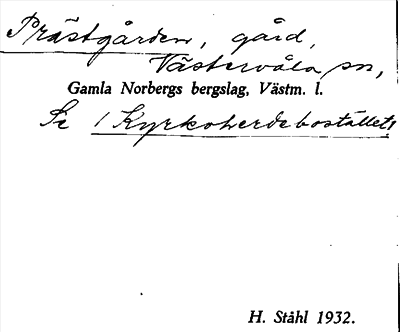 Prästgården, gård,
Västervåla sn,
Gamla Norbergs bergslag, Västm. l.
Se / Kyrkoherdebostället /
H. Ståhl 1932.